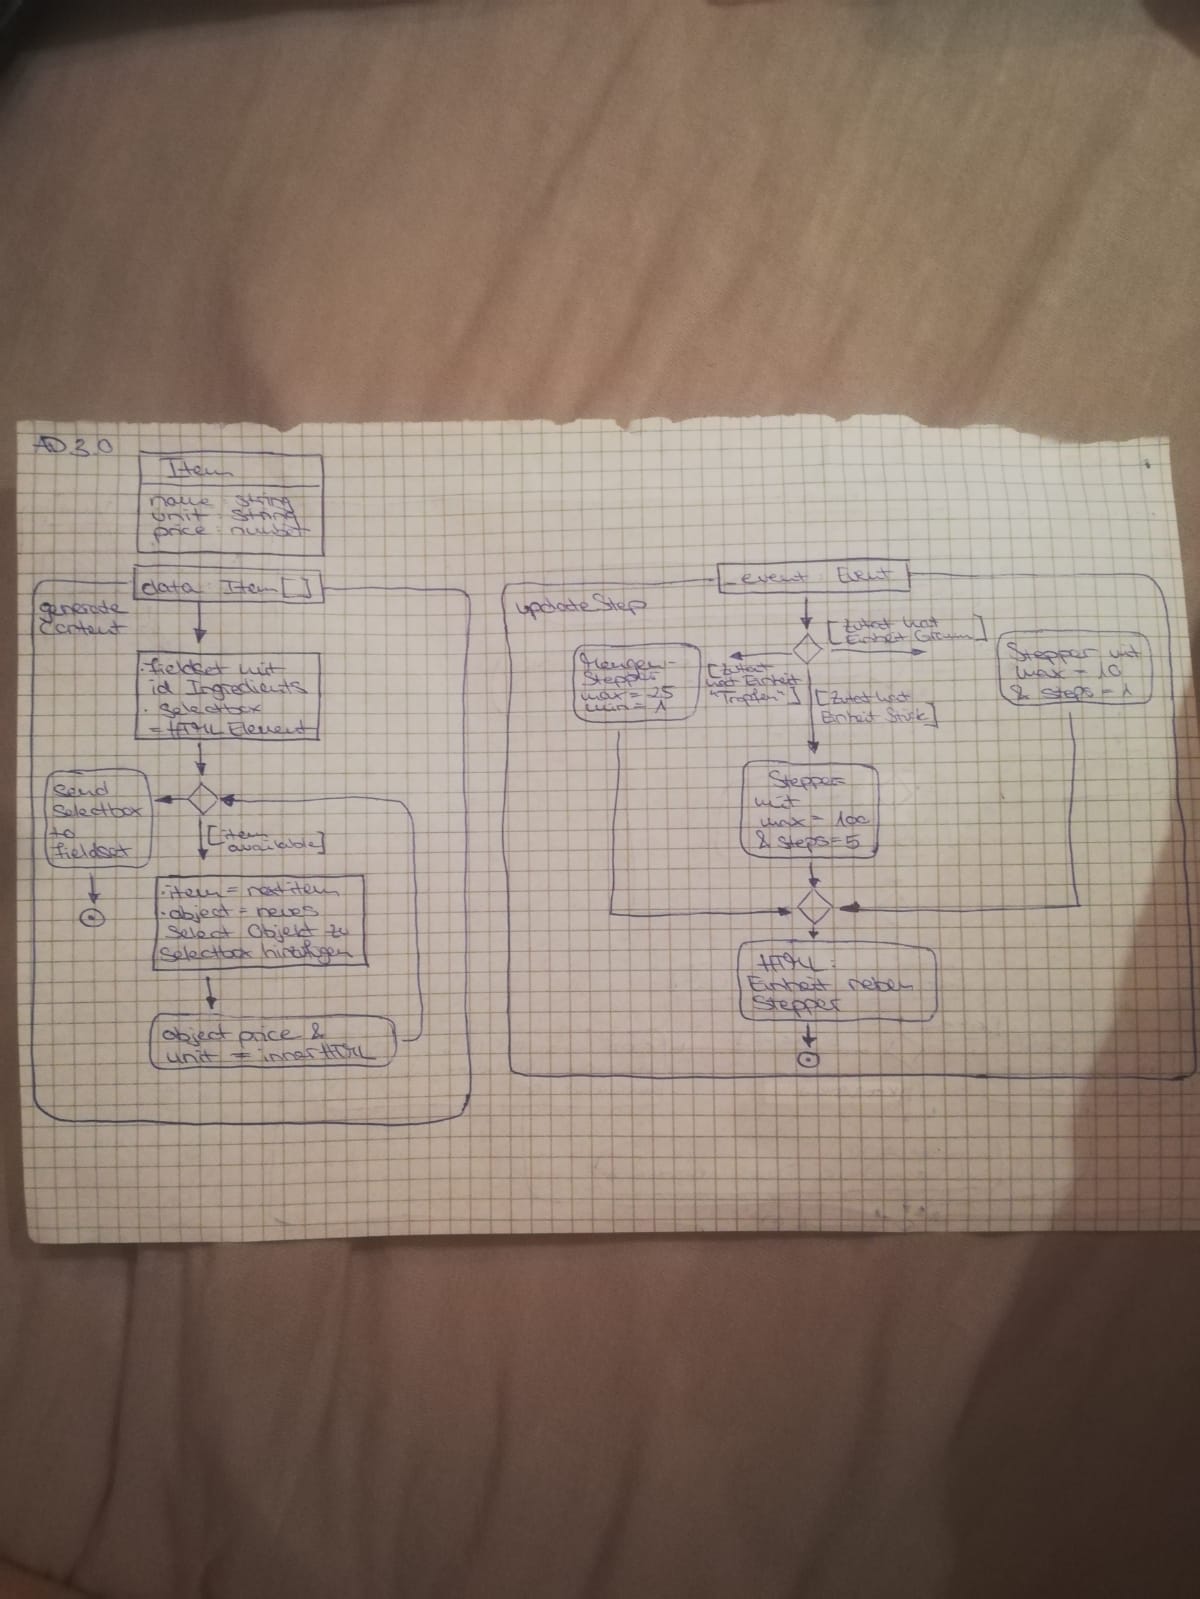 AD 3.0
Item
name: string
unit: string
price: number
data: Item[]
generate
Content
· fieldset mit
id Ingredients
· Selectbox
= HTML Element
Send
Selectbox
to
fieldset
[item
available]
· item = next item
· object = neues
Select Objekt zu
Selectbox hinzufügen
object price &
unit = innerHTML
_event: Event
updateStep
[Zutat hat
Einheit Gramm]
Mengen-
Stepper
max = 25
min = 1
[Zutat
hat Einheit
"Tropfen"]
[Zutat hat
Einheit Stück]
Stepper mit
max = 10
& Steps = 1
Stepper
mit
max = 100
& Steps = 5
HTML:
Einheit neben
Stepper